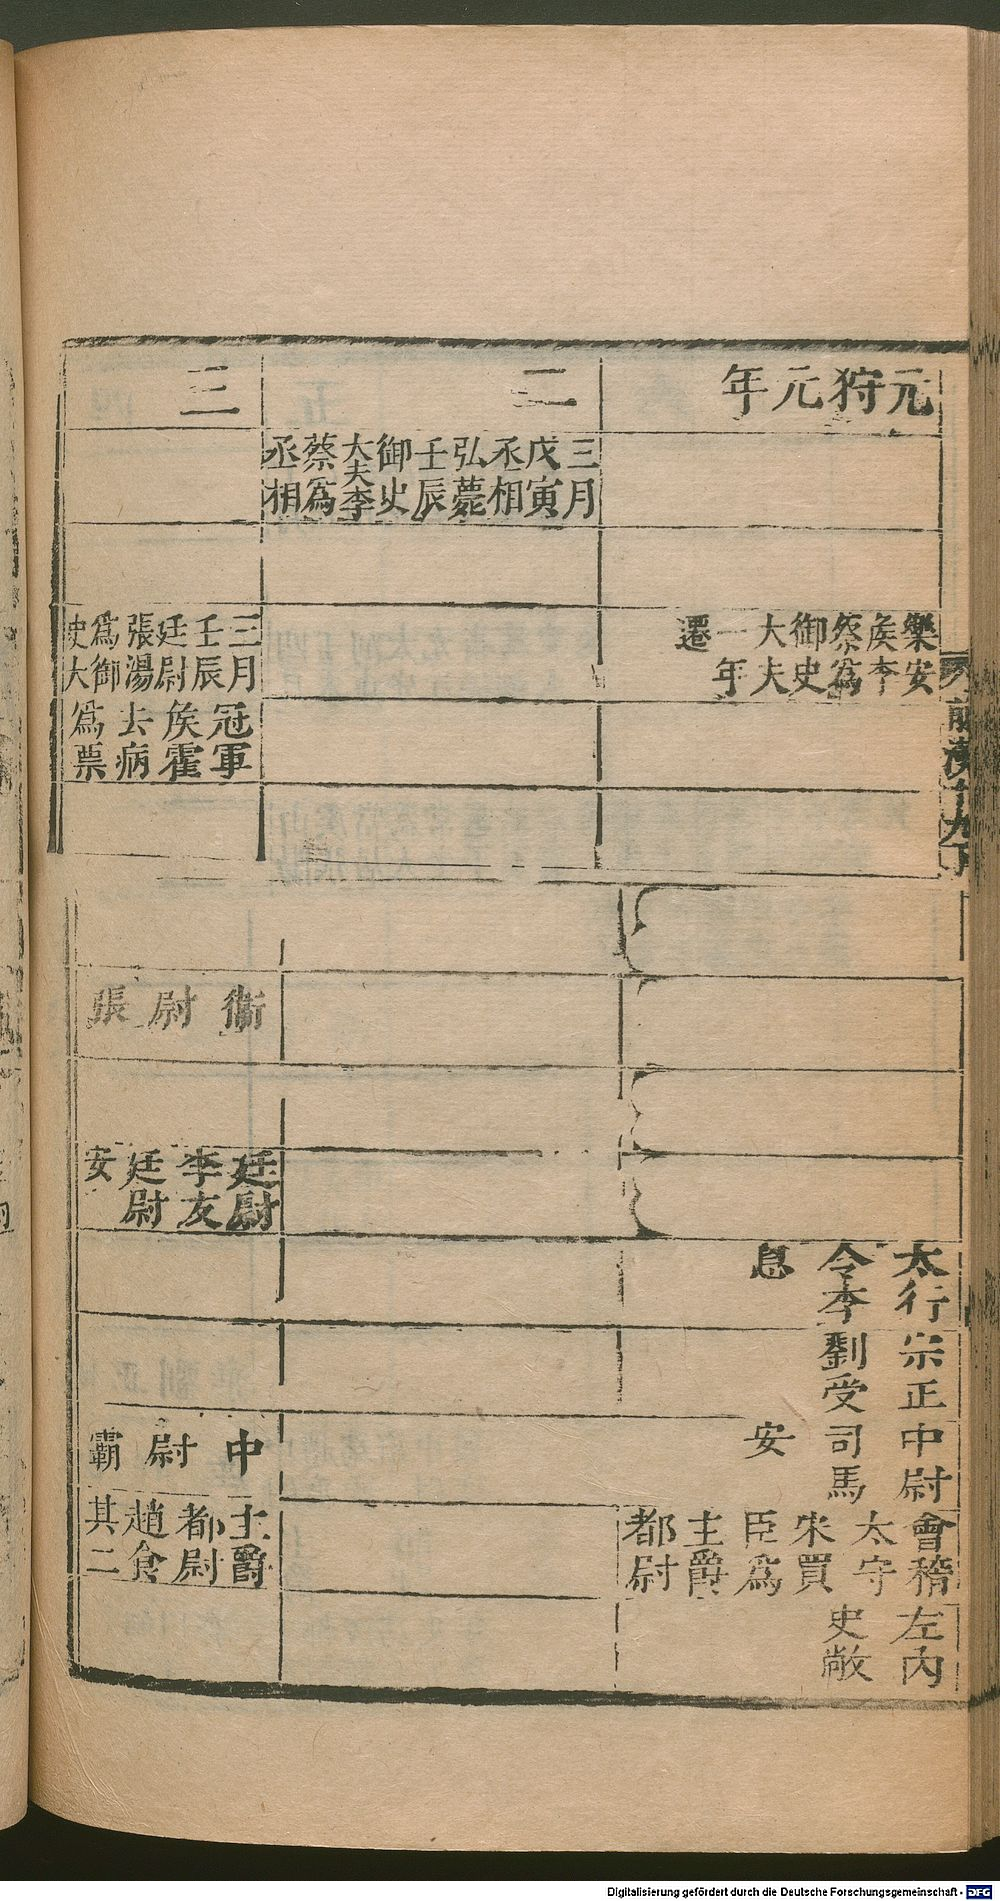 元狩元年
樂安
矦李
蔡爲
御史
大夫
一年
遷
太行
令李
息
宗正
劉受
中尉
司馬
安
會稽
太守
朱買
臣爲
主爵
都尉
左內
史敞
二
三月
戊寅
丞相
弘薨
壬辰
御史
大夫李
蔡爲
丞相
三
三月
壬辰
廷尉
張湯
爲御
史大
冠軍
矦霍
去病
爲票
衞尉張
廷尉
李友
廷尉
安
中尉霸
主爵
都尉
趙食
其二
前漢十九下
Digitalisierung gefördert durch die Deutsche Forschungsgemeinschaft - DFG